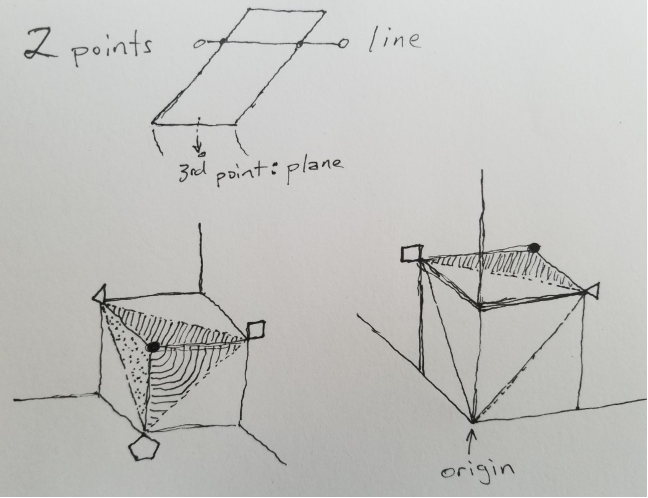 2 points
line
3rd point: plane
origin